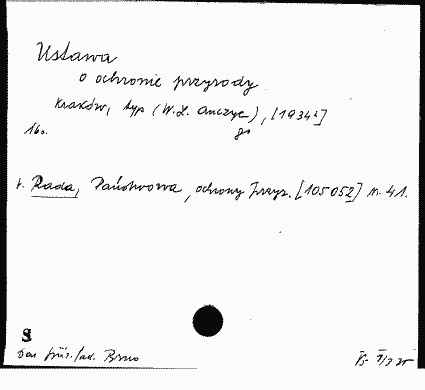 Ustawa
o ochronie przyrody
Kraków, typ (W. L. Anczyc), [1934]
16o.
t. Rada, Państwowa, ochrony Przyr. [105052] nr. 41.
S
Dar Brno